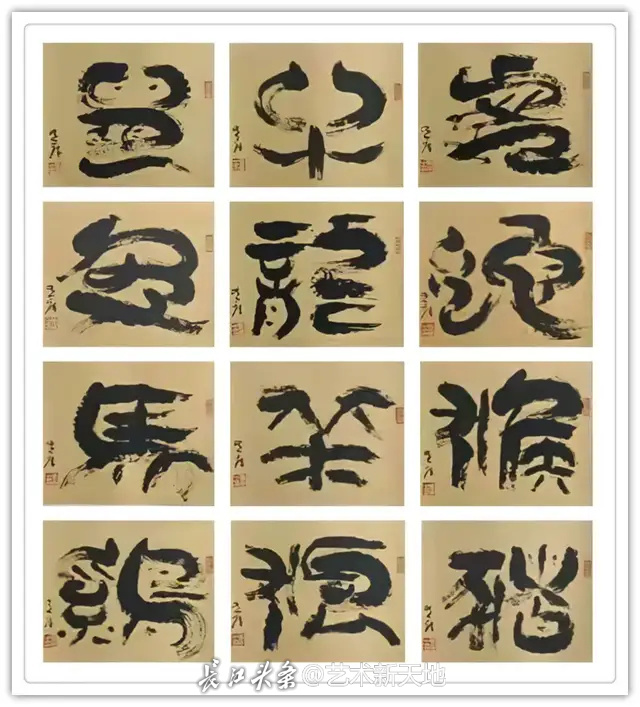 鼠 牛 虎
兔 龍 蛇
馬 羊 猴
鷄 狗 猪
长江头条 @艺术新天地